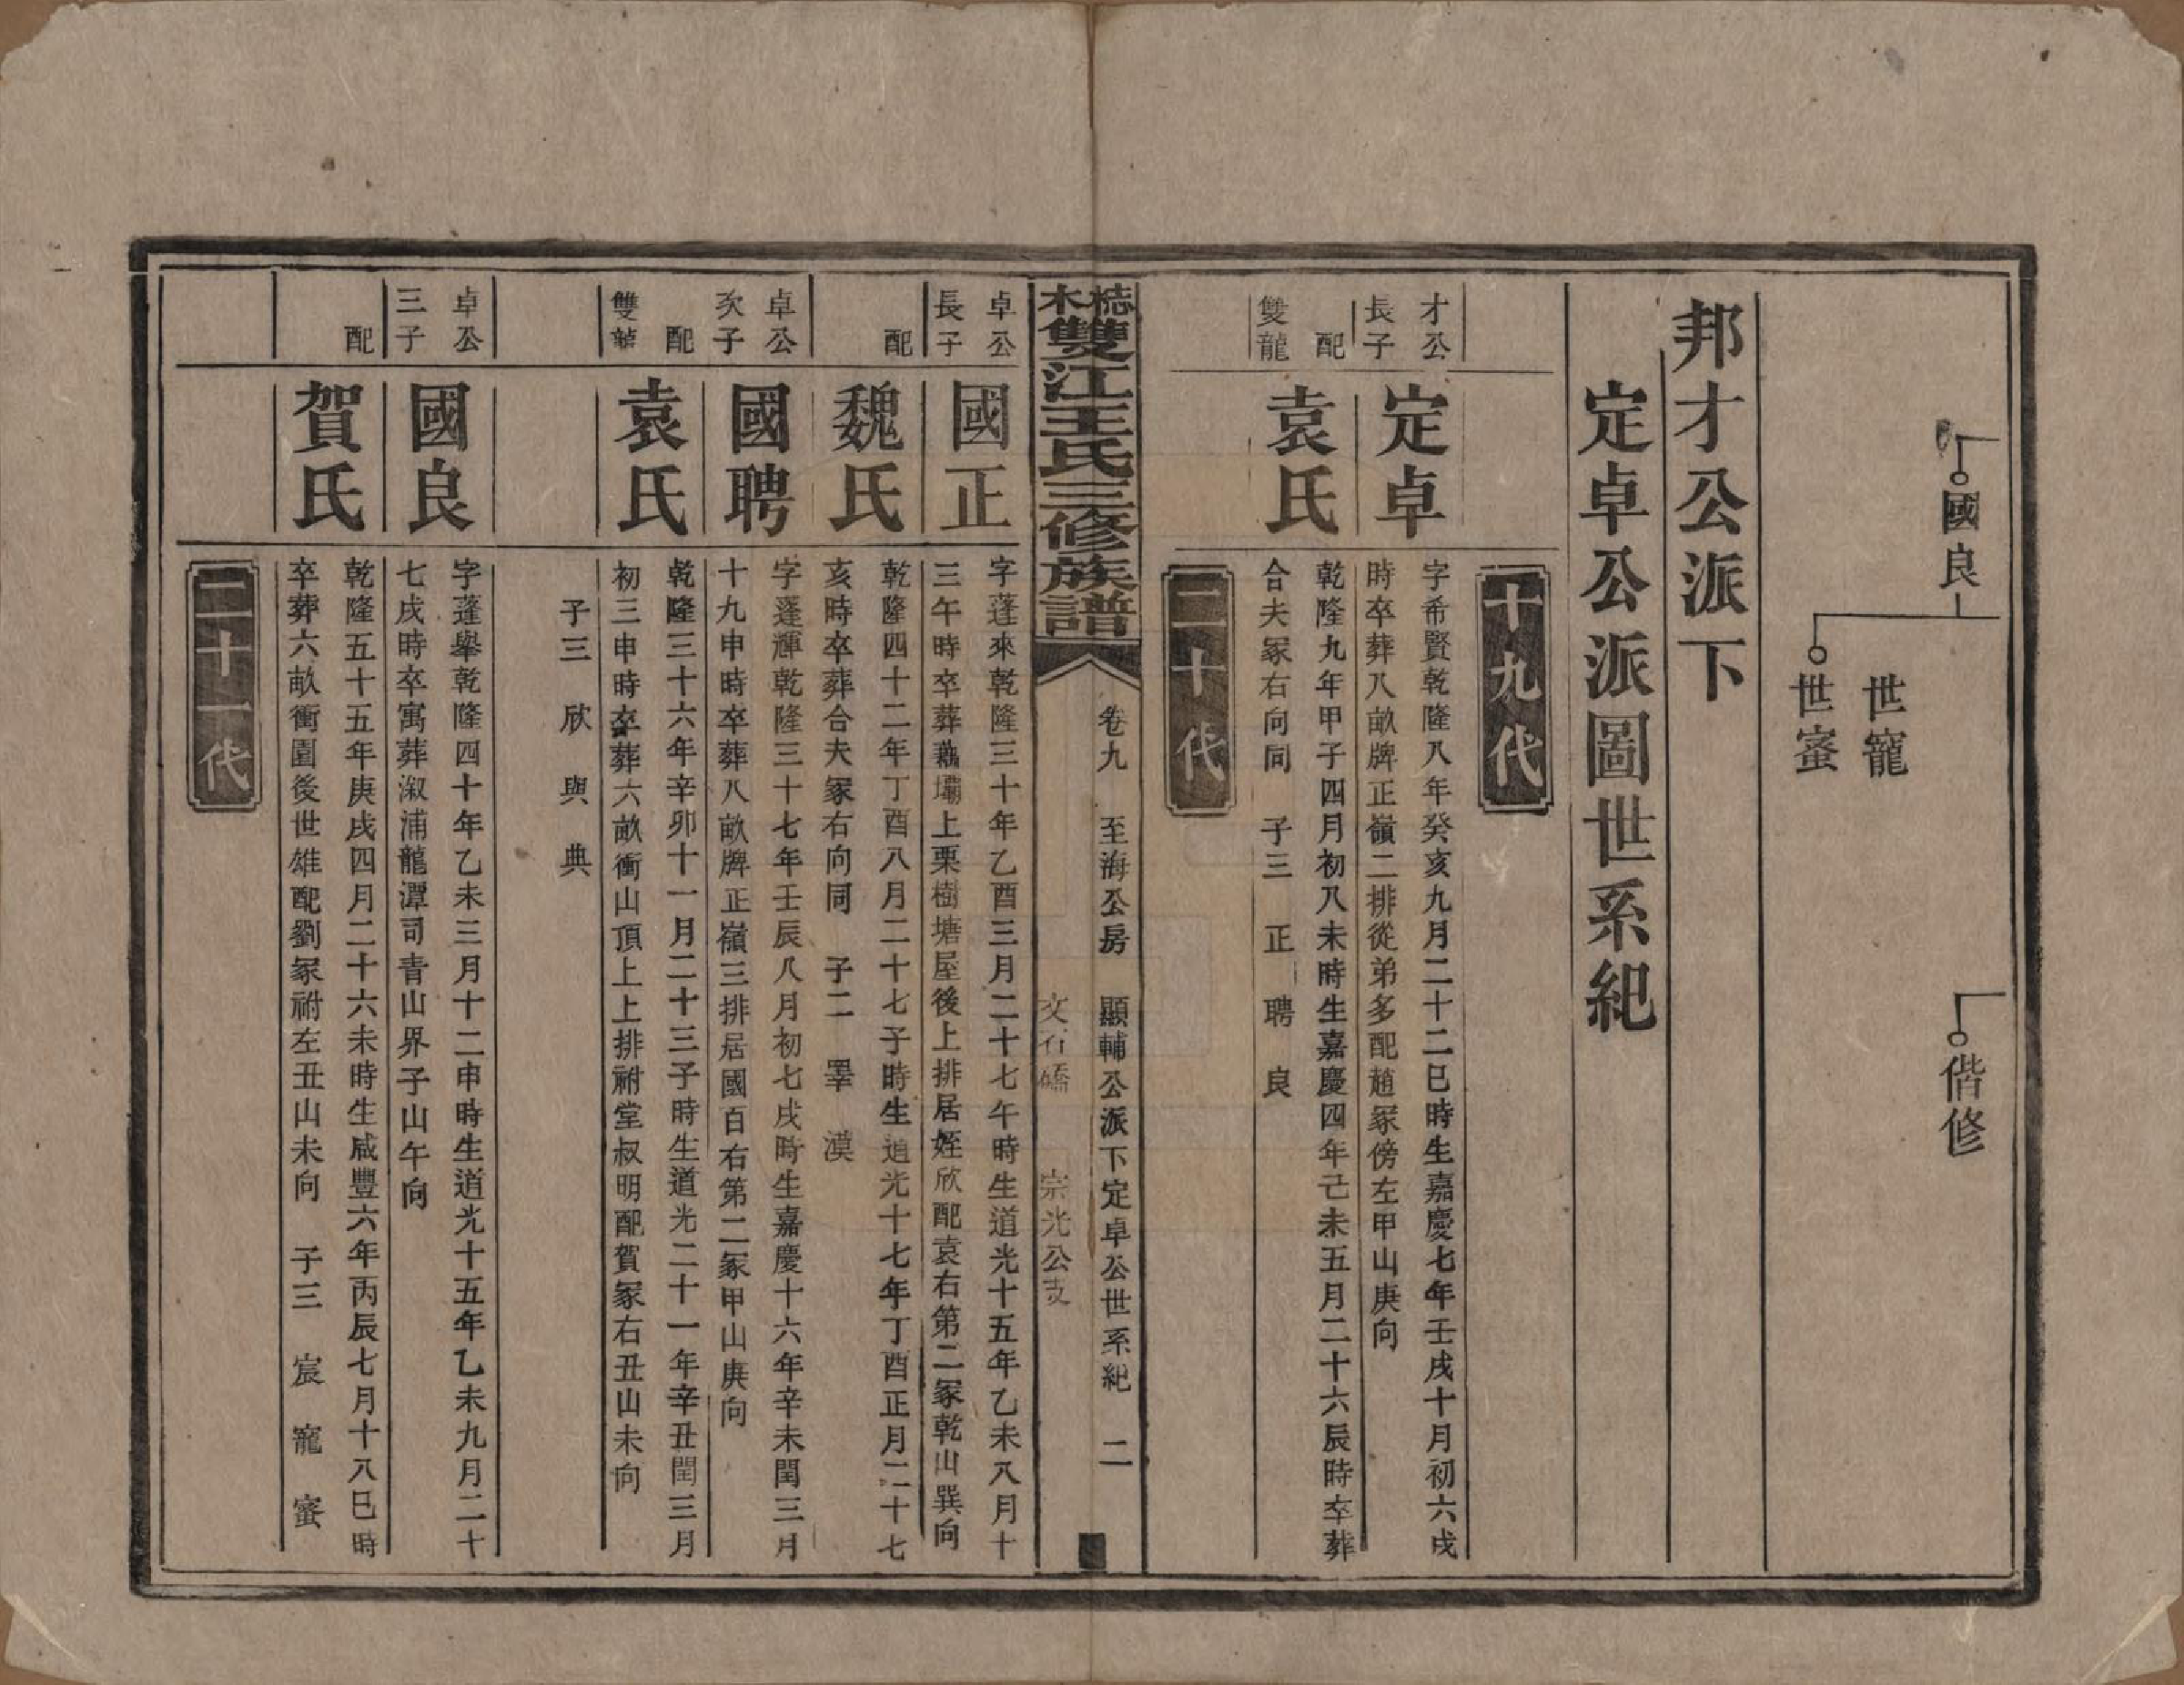 國良
世寵
世蜜
偕修
邦才公派下
定卓公派圖世系紀
十九代
才公長子
定卓
字希賢乾隆八年癸亥九月二十二巳時生嘉慶七年壬戌十月初六戌
時卒葬八畝牌正嶺二排從弟多配趙冢傍左甲山庚向
配
雙龍
袁氏
乾隆九年甲子四月初八未時生嘉慶四年己未五月二十六辰時卒葬
合夫冢右向同 子三 正 聘 良
二十代
梽木雙江王氏三修族譜
卷九 至海公房 顯輔公派下定卓公世系紀 二
文石礄 宗光公支
卓公長子
國正
字蓬來乾隆三十年乙酉三月二十七午時生道光十五年乙未八月十
三午時卒葬藕壩上栗樹塘屋後上排居姪欣配袁右第二冢乾山巽向
配
魏氏
乾隆四十二年丁酉八月二十七子時生道光十七年丁酉正月二十七
亥時卒葬合夫冢右向同 子二 睪 漠
卓公次子
國聘
字蓬輝乾隆三十七年壬辰八月初七戌時生嘉慶十六年辛未閏三月
十九申時卒葬八畝牌正嶺三排居國百右第二冢甲山庚向
配
雙龍
袁氏
乾隆三十六年辛卯十一月二十三子時生道光二十一年辛丑閏三月
初三申時卒葬六畝衝山頂上上排祔堂叔明配賀冢右丑山未向
子三 欣 與 典
卓公三子
國良
字蓬舉乾隆四十年乙未三月十二申時生道光十五年乙未九月二十
七戌時卒寓葬溆浦龍潭司青山界子山午向
配
賀氏
乾隆五十五年庚戌四月二十六未時生咸豐六年丙辰七月十八巳時
卒葬六畝衝園後世雄配劉冢祔左丑山未向 子三 宸 寵 蜜
二十一代